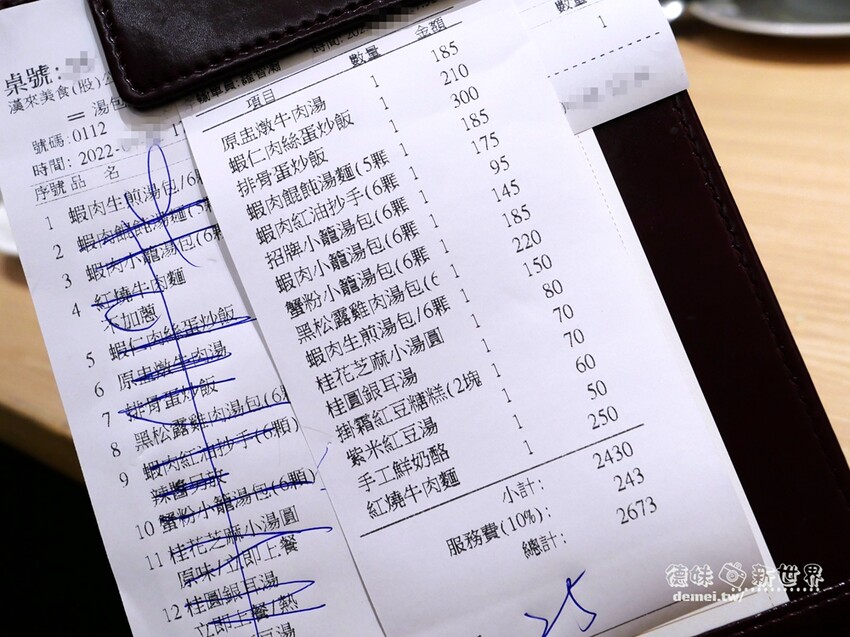 桌號:
漢來美食(股)公
＝ 湯包
號碼:0112
時間: 2022-
序號 品 名
1 蝦肉生煎湯包/6顆
2 蝦肉餛飩湯麵(5顆
3 蝦肉小籠湯包(6顆
4 紅燒牛肉麵
不加蔥
5 蝦仁肉絲蛋炒飯
6 原盅燉牛肉湯
7 排骨蛋炒飯
8 黑松露雞肉湯包(6顆
9 蝦肉紅油抄手(6顆)
辣醬另放
10 蟹粉小籠湯包(6顆)
11 桂花芝麻小湯圓
原味/立即上餐
12 桂圓銀耳湯
立即上餐/熱
豆湯
時間: 202
項目 數量 金額
原盅燉牛肉湯 1 185
蝦仁肉絲蛋炒飯 1 210
排骨蛋炒飯 1 300
蝦肉餛飩湯麵(5顆 1 185
蝦肉紅油抄手(6顆 1 175
招牌小籠湯包(6顆 1 95
蝦肉小籠湯包(6顆 1 145
蟹粉小籠湯包(6顆 1 185
黑松露雞肉湯包(6 1 220
蝦肉生煎湯包/6顆 1 150
桂花芝麻小湯圓 1 80
桂圓銀耳湯 1 70
掛霜紅豆糖糕(2塊 1 70
紫米紅豆湯 1 60
手工鮮奶酪 1 50
紅燒牛肉麵 1 250
小計: 2430
服務費(10%): 243
總計: 2673
25
數量
1
德妹新世界
demei.tw/